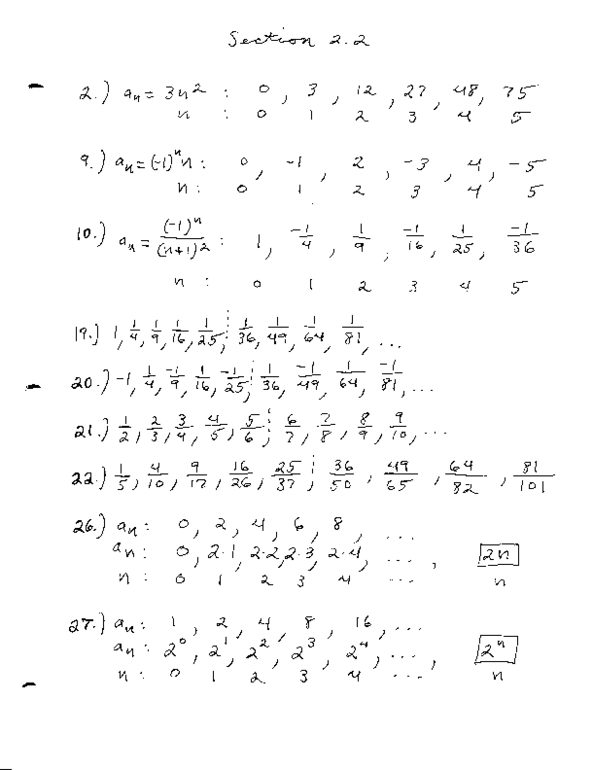 Section 2.2
2.) aₙ = 3n² : 0, 3, 12, 27, 48, 75
n : 0 1 2 3 4 5
9.) aₙ = (-1)ⁿn : 0, -1, 2, -3, 4, -5
n : 0 1 2 3 4 5
10.) aₙ = (-1)ⁿ/(n+1)² : 1, -1/4, 1/9, -1/16, 1/25, -1/36
n : 0 1 2 3 4 5
19.) 1, 1/4, 1/9, 1/16, 1/25, 1/36, 1/49, 1/64, 1/81, ...
20.) -1, 1/4, -1/9, 1/16, -1/25, 1/36, -1/49, 1/64, -1/81, ...
21.) 1/2, 2/3, 3/4, 4/5, 5/6, 6/7, 7/8, 8/9, 9/10, ...
22.) 1/5, 4/10, 9/17, 16/26, 25/37, 36/50, 49/65, 64/82, 81/101
26.) aₙ : 0, 2, 4, 6, 8, ...
aₙ : 0, 2·1, 2·2, 2·3, 2·4, ..., 2n
n : 0 1 2 3 4 ... n
27.) aₙ : 1, 2, 4, 8, 16, ...
aₙ : 2⁰, 2¹, 2², 2³, 2⁴, ..., 2ⁿ
n : 0 1 2 3 4 ... n